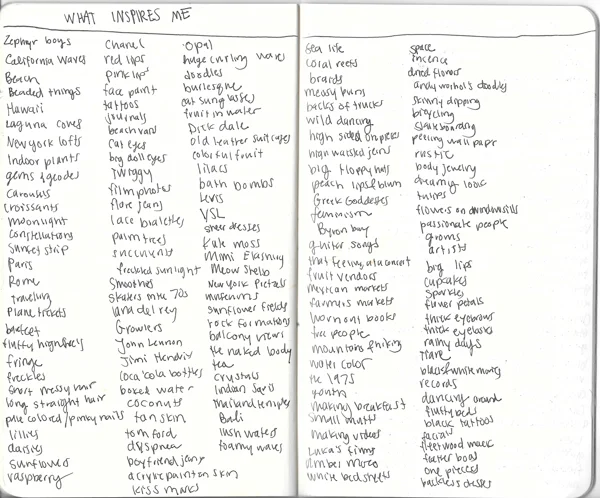 WHAT INSPIRES ME
Zephyr boys
California waves
Beach
Beaded things
Hawaii
laguna coves
New york lofts
Indoor plants
gems & geodes
Carousels
croissants
moonlight
constellations
Sunset strip
Paris
Rome
traveling
Plane tickets
basket
fluffy
fringe
freckles
short messy hair
long straight hair
pale colored/pinky nails
lillies
daisies
sunflowers
raspberry
Chanel
red lips
pink lips
face paint
tattoos
journals
beach vans
Cat eyes
big doll eyes
Twiggy
film photos
flare jeans
lace bralettes
palm trees
succulents
freckled sunlight
Smoothies
skaters in the 70s
lana del rey
Growlers
John Lennon
Jimi Hendrix
coca cola bottles
boxed water
coconuts
tan skin
tom ford
boyfriend jeans
acrylic paint on skin
kiss marks
opal
huge curling waves
doodles
burlesque
cat sunglasses
fruit in water
Dick dale
old leather suitcases
colorful fruit
lilacs
bath bombs
levis
YSL
sheer dresses
Kate moss
Mimi Elashiry
Meow Stella
New york
museums
sunflower fields
rock formations
balcony views
the naked body
tea
crystals
Indian
thailand temples
Bali
lush waters
foamy waves
sea life
coral reefs
braids
messy buns
backs of trucks
wild dancing
high sided one pieces
high waisted jeans
big floppy hats
peach lips
Greek Goddesses
feminism
Byron bay
guitar songs
that feeling at a concert
fruit vendors
mexican markets
farmers markets
worn out books
free people
mountains hiking
water color
the 1975
youth
making breakfast
small mutts
making videos
Luka's films
white bed sheets
space
incence
dried flowers
andy warhol's doodles
skinny dipping
bicycling
skateboarding
peeling wall papr
rustic
body jewelry
dreamy look
tulips
flowers on windowsills
passionate people
artists
big lips
cupcakes
Sparkles
flower petals
thick eyebrows
thick eyelashes
rainy days
black & white movies
records
dancing around
fluffy bed
black tattoos
facials
fleetwood mac
feather boas
one pieces
backless dresses